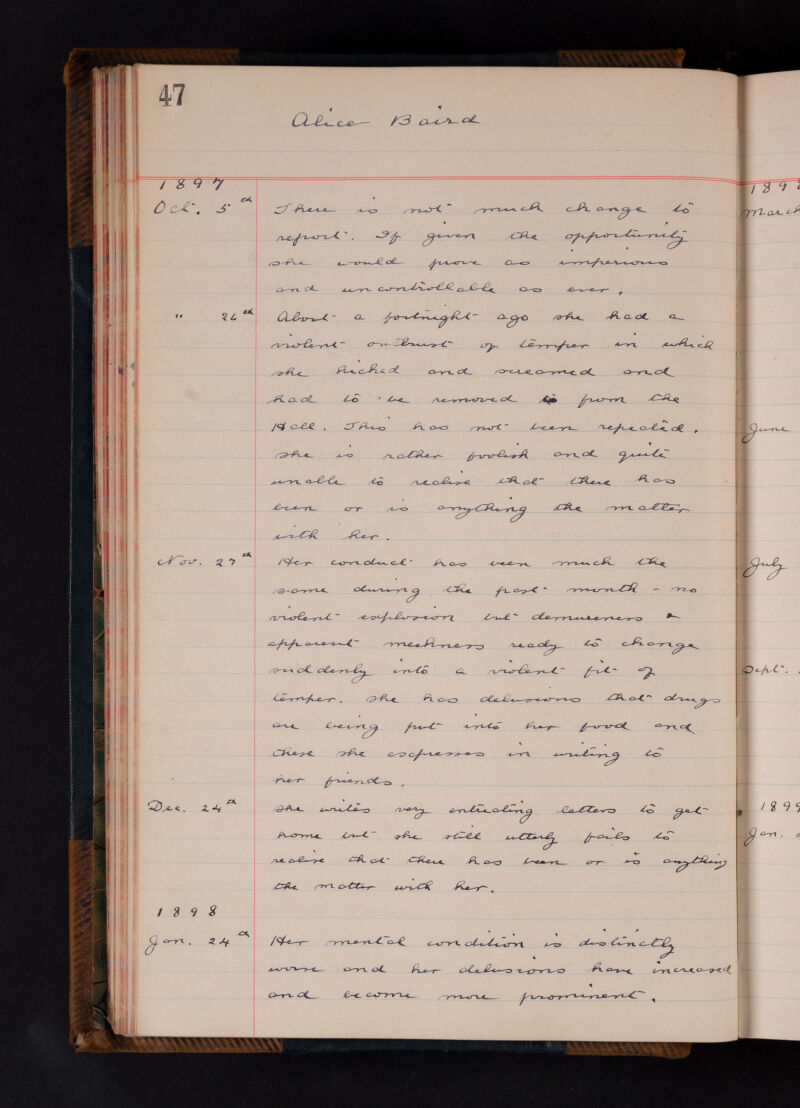 47
Alice Baird
1897
Oct. 5th There is not much change to
report. If given the opportunity
she would prove as imperious
and uncontrollable as ever.
" 26th About a fortnight ago she had a
violent outburst of temper in which
she kicked and screamed and
had to be removed from the
Hall. This has not been repeated.
She is rather foolish and quite
unable to realise that there has
been or is anything the matter
with her.
Nov. 27th Her conduct has been much the
same during the past month - no
violent explosion but demureness &
apparent meekness ready to change
suddenly into a violent fit of
temper. She has delusions that drugs
are being put into her food and
these she expresses in writing to
her friends.
Dec. 24th She writes very entreating letters to get
home but she still utterly fails to
realise that there has been or is anything
the matter with her.
1898
Jan. 24th Her mental condition is distinctly
worse and her delusions have increased
and become more prominent.
189
March
June
July
Sept.
1899
Jan.